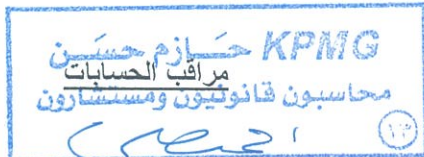 KPMG حـــازم حســـن
مراقب الحسابات
محاسبون قانونيون ومستشارون